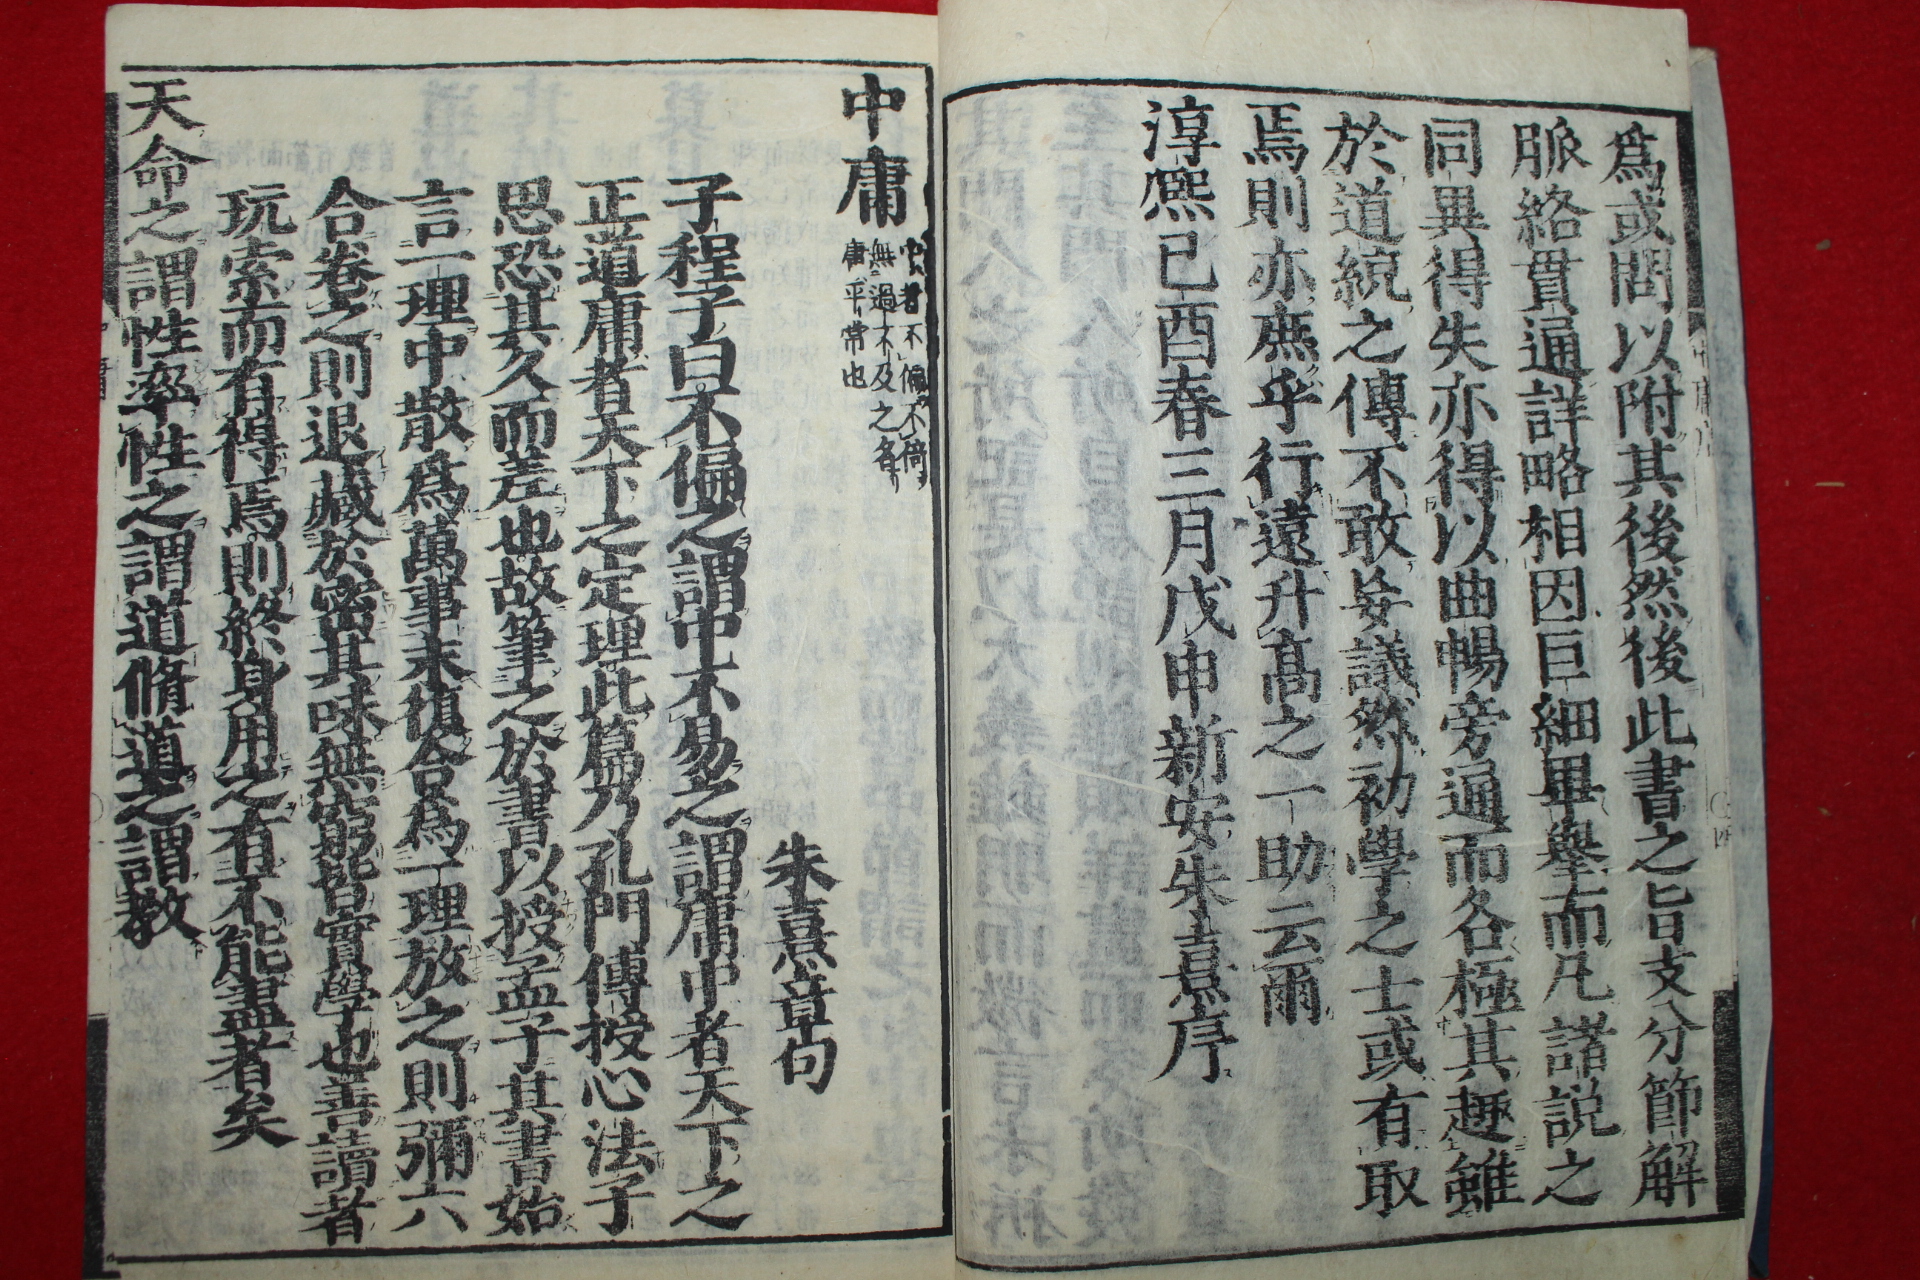 爲或問以附其後然後此書之旨支分節解
脈絡貫通詳略相因巨細畢擧而凡諸説之
同異得失亦得以曲暢旁通而各極其趣雖
於道統之傳不敢妄議然初學之士或有取
焉則亦庶乎行遠升髙之一助云爾
淳熈己酉春三月戊申新安朱熹序
中庸
中者不偏不倚
無過不及之名
庸平常也
朱熹章句
子程子曰不偏之謂中不易之謂庸中者天下之
正道庸者天下之定理此篇乃孔門傳授心法子
思恐其久而差也故筆之於書以授孟子其書始
言一理中散爲萬事末復合爲一理放之則彌六
合卷之則退藏於密其味無窮皆實學也善讀者
玩索而有得焉則終身用之有不能盡者矣
天命之謂性率性之謂道脩道之謂教